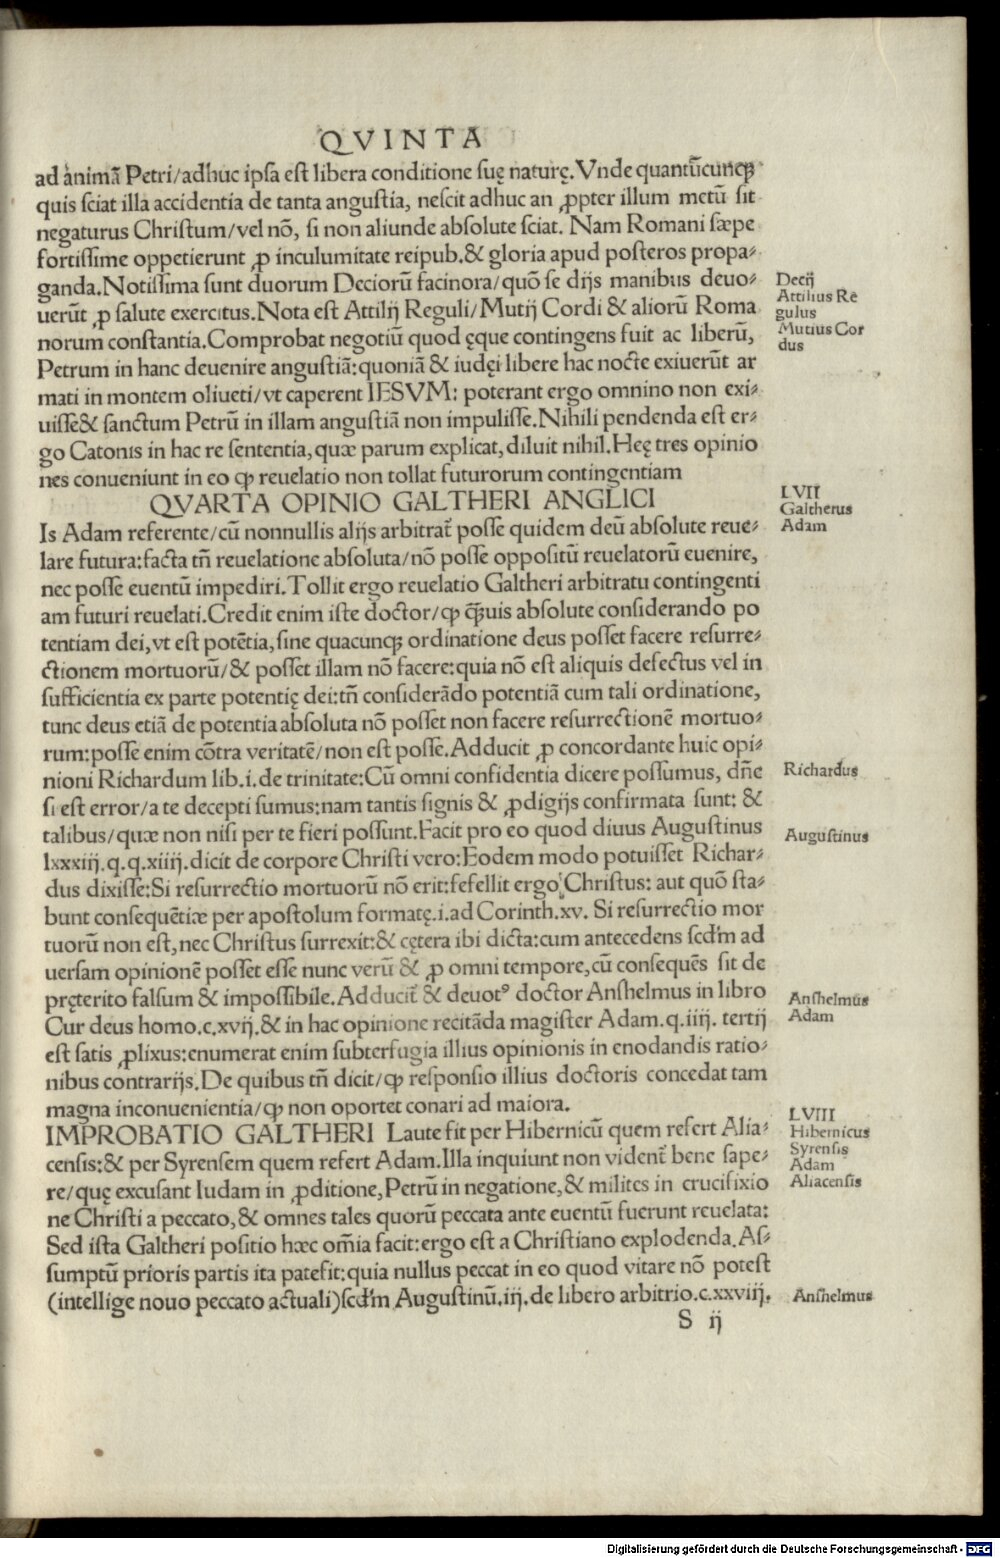 QVINTA
ad animã Petri/adhuc ipsa est libera conditione suę naturę. Vnde quantũcunqꝫ
quis sciat illa accidentia de tanta angustia, nescit adhuc an ꝓpter illum metũ sit
negaturus Christum/vel nõ, si non aliunde absolute sciat. Nam Romani sæpe
fortissime oppetierunt ꝓ inculumitate reipub. & gloria apud posteros propa⸗
ganda. Notissima sunt duorum Deciorũ facinora/quõ se dijs manibus deuo⸗
uerũt ꝓ salute exercitus. Nota est Attilij Reguli/Mutij Cordi & aliorũ Roma
norum constantia. Comprobat negotiũ quod ęque contingens fuit ac liberũ,
Petrum in hanc deuenire angustiã: quoniã & iudęi libere hac nocte exiuerũt ar
mati in montem oliueti/vt caperent IESVM: poterant ergo omnino non exi⸗
uisse & sanctum Petrũ in illam angustiã non impulisse. Nihili pendenda est er⸗
go Catonis in hac re sententia, quæ parum explicat, diluit nihil. Hęę tres opinio
nes conueniunt in eo ꝙ reuelatio non tollat futurorum contingentiam
QVARTA OPINIO GALTHERI ANGLICI
Is Adam referente/cũ nonnullis alijs arbitrat̃ posse quidem deũ absolute reue⸗
lare futura: facta tñ reuelatione absoluta/nõ posse oppositũ reuelatorũ euenire,
nec posse euentũ impediri. Tollit ergo reuelatio Galtheri arbitratu contingenti
am futuri reuelati. Credit enim iste doctor/ꝙ q̃ꝫuis absolute considerando po
tentiam dei, vt est potẽtia, sine quacunqꝫ ordinatione deus posset facere resurre⸗
ctionem mortuorũ/& posset illam nõ facere: quia nõ est aliquis defectus vel in
sufficientia ex parte potentię dei: tñ considerãdo potentiã cum tali ordinatione,
tunc deus etiã de potentia absoluta nõ posset non facere resurrectionẽ mortuo⸗
rum: posse enim cõtra veritatẽ/non est posse. Adducit ꝓ concordante huic opi⸗
nioni Richardum lib. i. de trinitate: Cũ omni confidentia dicere possumus, dñe
si est error/a te decepti sumus: nam tantis signis & ꝓdigijs confirmata sunt: &
talibus/quæ non nisi per te fieri possunt. Facit pro eo quod diuus Augustinus
lxxxiij. q. q. xiiij. dicit de corpore Christi vero: Eodem modo potuisset Richar⸗
dus dixisse: Si resurrectio mortuorũ nõ erit: fefellit ergo Christus: aut quõ sta⸗
bunt consequẽtiæ per apostolum formatę. i. ad Corinth. xv. Si resurrectio mor
tuorũ non est, nec Christus surrexit: & cętera ibi dicta: cum antecedens scďm ad
uersam opinionẽ posset esse nunc verũ & ꝓ omni tempore, cũ consequẽs sit de
pręterito falsum & impossibile. Adducit̃ & deuotꝰ doctor Anshelmus in libro
Cur deus homo. c. xvij. & in hac opinione recitãda magister Adam. q. iiij. tertij
est satis ꝓlixus: enumerat enim subterfugia illius opinionis in enodandis ratio⸗
nibus contrarijs. De quibus tñ dicit/ꝙ responsio illius doctoris concedat tam
magna inconuenientia/ꝙ non oportet conari ad maiora.
IMPROBATIO GALTHERI Laute fit per Hibernicũ quem refert Alia⸗
censis: & per Syrensem quem refert Adam. Illa inquiunt non vident̃ bene sape⸗
re/quę excusant Iudam in ꝓditione, Petrũ in negatione, & milites in crucifixio
ne Christi a peccato, & omnes tales quorũ peccata ante euentũ fuerunt reuelata:
Sed ista Galtheri positio hæc om̃ia facit: ergo est a Christiano explodenda. As⸗
sumptũ prioris partis ita patefit: quia nullus peccat in eo quod vitare nõ potest
(intellige nouo peccato actuali) scďm Augustinũ. iij. de libero arbitrio. c. xxviij.
S ij
Decij
Attilius Re
gulus
Mutius Cor
dus
LVII
Galtherus
Adam
Richardus
Augustinus
Anshelmus
Adam
LVIII
Hibernicus
Syrensis
Adam
Aliacensis
Anshelmus
Digitalisierung gefördert durch die Deutsche Forschungsgemeinschaft - DFG